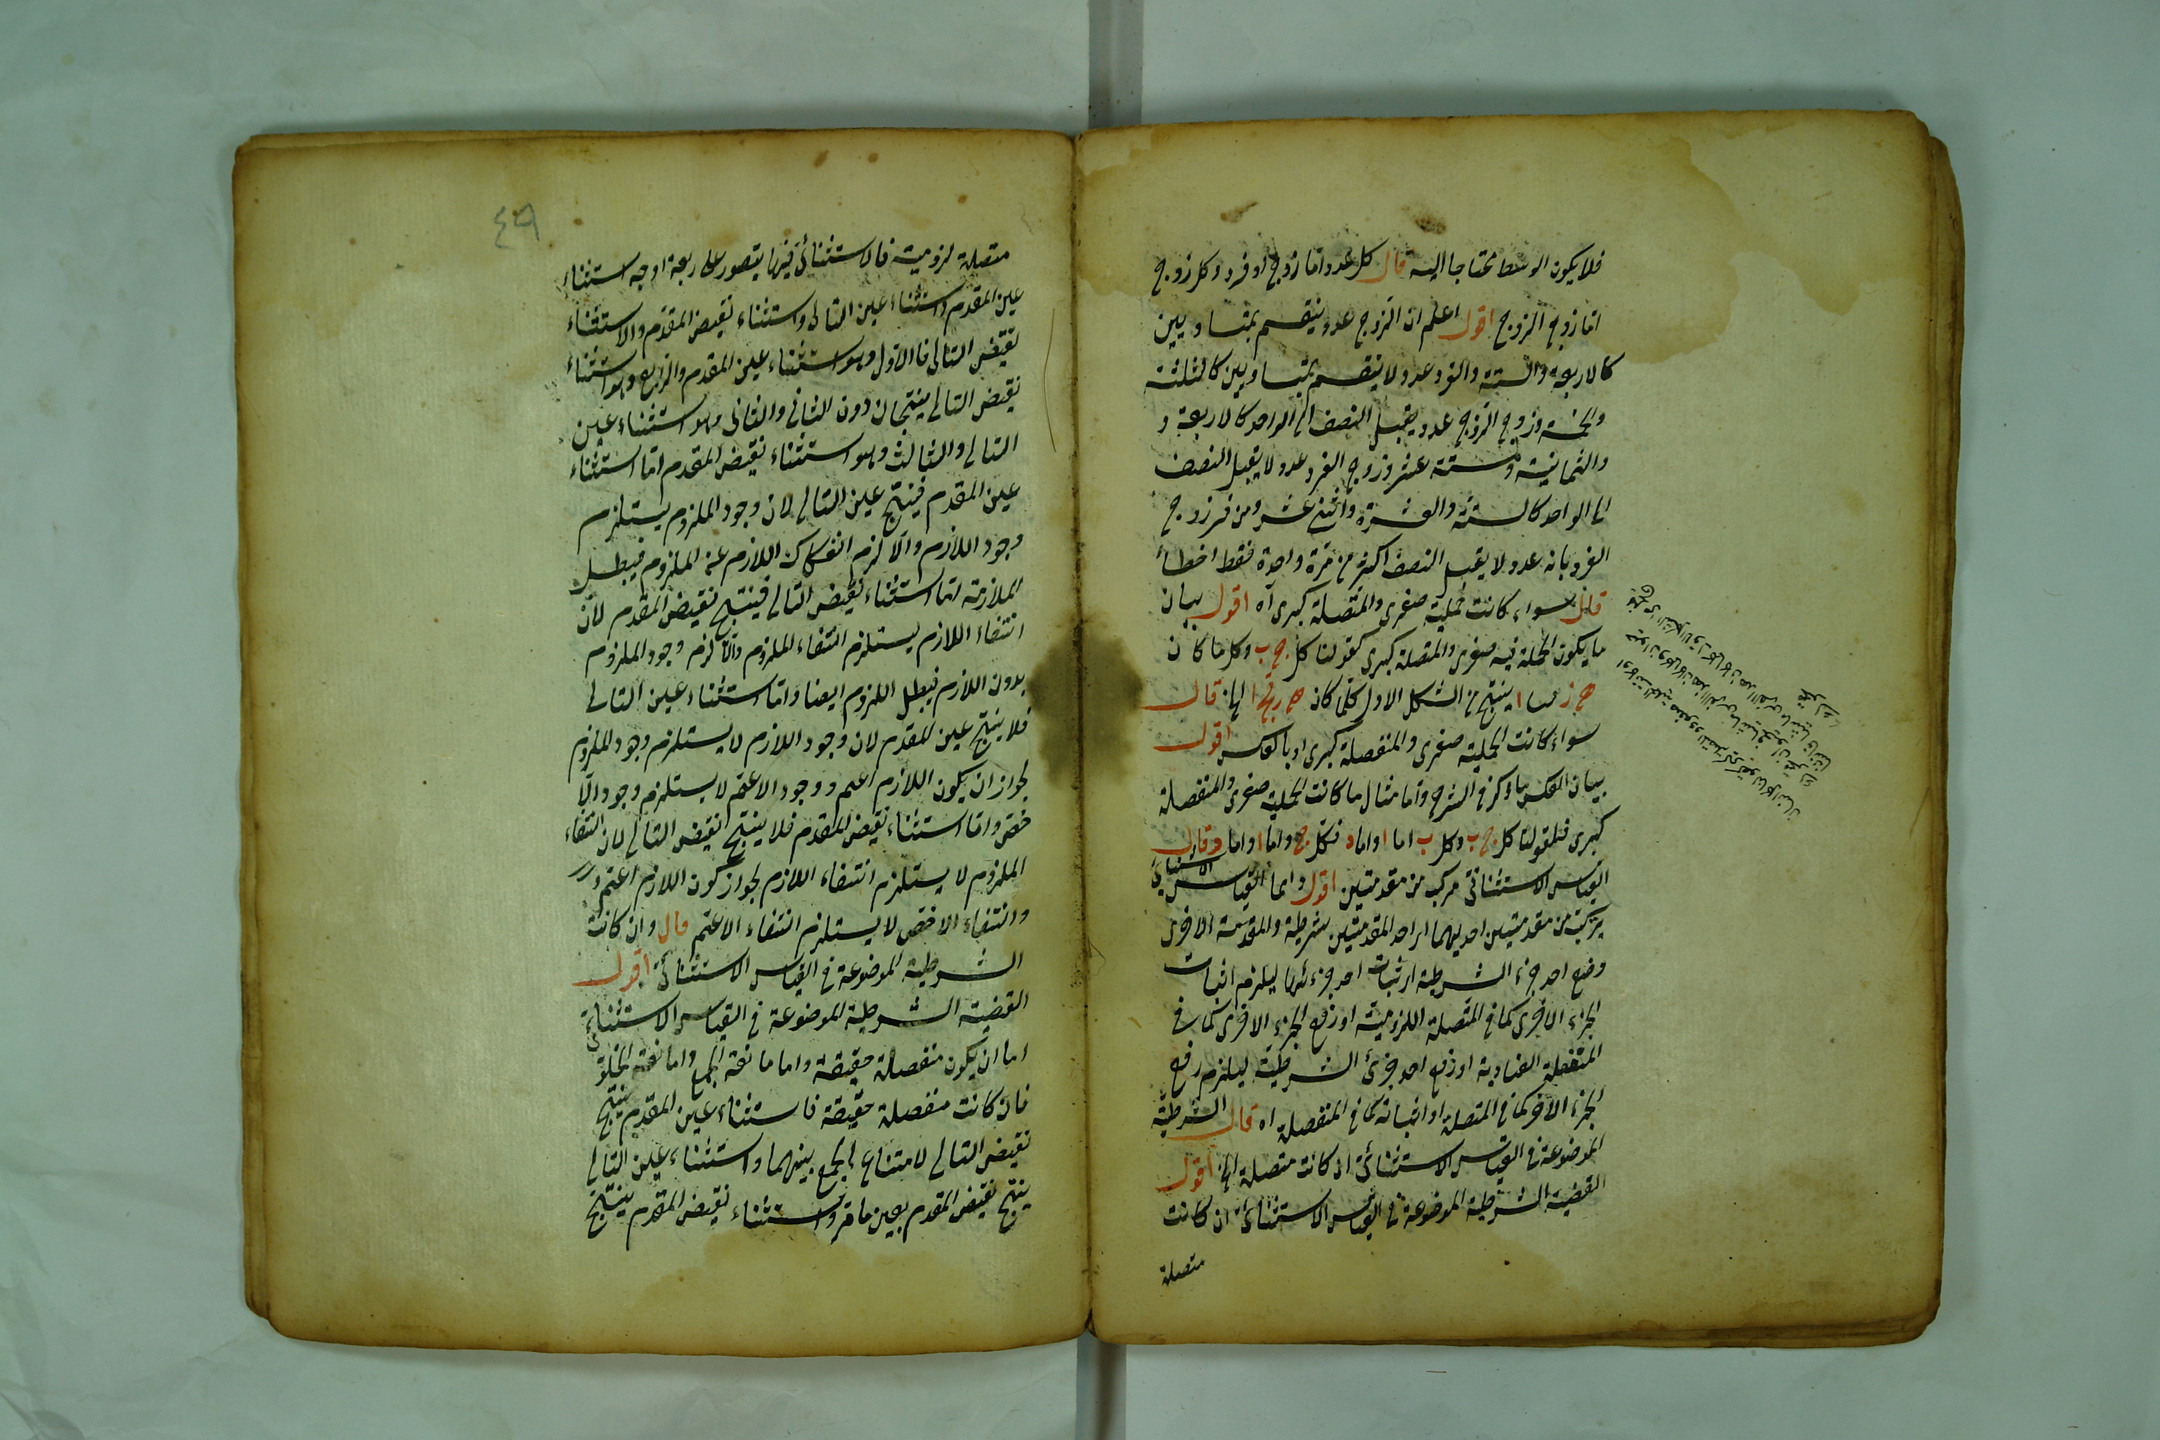 فلا يكون الوسط محتاجا اليه قال كل عدد اما زوج او فرد وكل زوج
اما زوج الزوج اقول اعلم ان الزوج عدد ينقسم بمتساويين
كالاربعة والستة والفرد عدد لا ينقسم بمتساويين كالثلثة
والخمسة وزوج الزوج عدد يقبل النصف الى الواحد كالاربعة و
والثمانية وستة عشر وزوج الفرد عدد لا يقبل النصف
الى الواحد كالستة والعشرة واثنى عشر ومن فسر زوج
الفرد بانه عدد لا يقبل النصف اكثر من مرة واحدة فقط اخطأ
قال سواء كانت حملية صغرى والمتصلة كبرى آه اقول بيان
ما يكون الحملية فيه صغرى والمتصلة كبرى كقولنا كل ج ب وكلما كان
ينتج من الشكل الاول كلما كان الخ قال
سواء كانت الحملية صغرى والمنفصلة كبرى او بالعكس اقول
بيان العكس ما ذكر فى الشرح واما مثال ما كانت الحملية صغرى والمنفصلة
كبرى فكقولنا كل ج ب وكل ب اما ا واما د فكل ج واما ا واما د قال
القياس الاستثنائى مركب من مقدمتين اقول وانما القياس الاستثنائى
يتركب من مقدمتين احديهما اى احد المقدمتين شرطية والمقدمة الاخرى
وضع احد جزء الشرطية اى اثبات احد جزئها ليلزم اثبات
الجزء الاخرى كما فى المتصلة اللزومية او رفع الجزء الاخرى كما فى
المنفصلة العنادية او رفع احد جزئى الشرطية ليلزم رفع
الجزء الاخر كما فى المتصلة او اثباته كما فى المنفصلة اه قال الشرطية
الموضوعة فى القياس الاستثنائى ان كانت متصلة الخ اقول
القضية الشرطية الموضوعة فى القياس الاستثنائى ان كانت
متصلة
متصلة لزومية فالاستثنائى فيها يتصور على اربعة اوجه استثناء
عين المقدم واستثناء عين التالى واستثناء نقيض المقدم والاستثناء
نقيض التالى فالاول وهو استثناء عين المقدم والرابع وهو استثناء
نقيض التالى ينتجان دون الثانى والثانى وهو استثناء عين
التالى والثالث وهو استثناء نقيض المقدم اما استثناء
عين المقدم فينتج عين التالى لان وجود الملزوم يستلزم
وجود اللازم والا لزم انفكاك اللازم عن الملزوم فيبطل
الملازمة اما استثناء نقيض التالى فينتج نقيض المقدم لان
انتفاء اللازم يستلزم انتفاء الملزوم والا لزم وجود الملزوم
بدون اللازم فيبطل اللزوم ايضا واما استثناء عين التالى
فلا ينتج عين المقدم لان وجود اللازم لا يستلزم وجود الملزوم
لجواز ان يكون اللازم اعم ووجود الاعم لا يستلزم وجود الا
خص واما استثناء نقيض المقدم فلا ينتج نقيض التالى لان انتفاء
الملزوم لا يستلزم انتفاء اللازم لجواز كون اللازم اعم
وانتفاء الاخص لا يستلزم انتفاء الاعم قال وان كانت
الشرطية الموضوعة فى القياس الاستثنائى اقول
القضية الشرطية الموضوعة فى القياس الاستثنائى
اما ان يكون منفصلة حقيقة واما مانعة الجمع واما مانعة الخلو
فان كانت منفصلة حقيقة فاستثناء عين المقدم ينتج
نقيض التالى لامتناع الجمع بينهما واستثناء عين التالى
ينتج نقيض المقدم بعين ما مر واستثناء نقيض المقدم ينتج